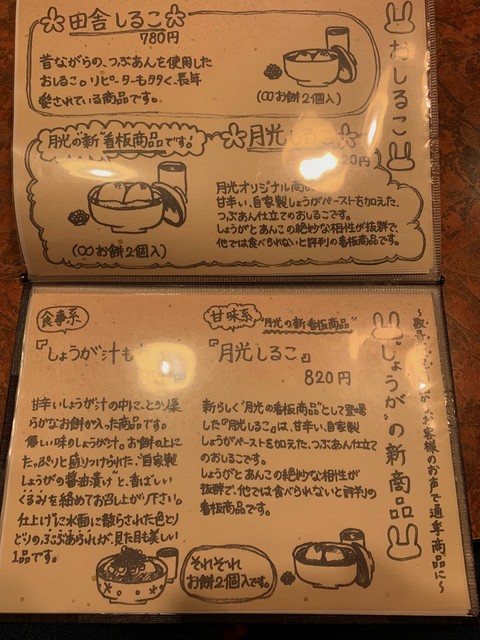 おしるこ
田舎しるこ
780円
昔ながらの、つぶあんを使用した
おしるこ。リピーターも多く、長年
愛されている商品です。
(○○お餅2個入)
月光の"新"看板商品です!
月光しるこ
20円
月光オリジナル商
甘辛い、自家製しょうがペーストを加えた、
つぶあん仕立てのおしるこです。
しょうがとあんこの絶妙な相性が抜群で、
他では食べられないと評判の看板商品です。
(○○お餅2個入)
"しょうが"の新商品
お客様のお声で通年商品に~
甘味系
"月光の新看板商品"
『月光しるこ』
820円
新らしく"月光の看板商品"として登場
した『月光しるこ』は、甘辛い、自家製
しょうがペーストを加えた、つぶあん仕立て
のおしるこです。
しょうがとあんこの絶妙な相性が
抜群で、他では食べられないと評判の
看板商品です。
食事系
『しょうが汁も
甘辛いしょうが汁の中に、とろり柔
らかなお餅が入った商品です。
優しい味のしょうが汁。お餅の上に
たっぷりと盛りつけられた、"自家製
しょうがの醤油漬け"と、香ばしい
くるみを絡めてお召上がり下さい。
仕上げに水面に散らされた色とり
どりのぶぶあられが、見た目も美しい
1品です。
それぞれ
お餅2個入です。